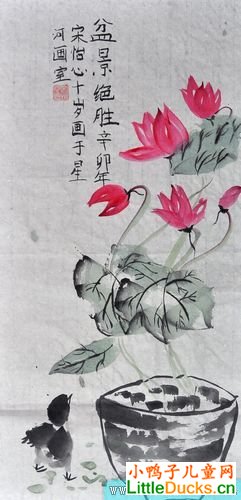 盆景绝胜辛卯年
宋怡心十岁画于星
河画室
小鸭子儿童网
LittleDucks.cn